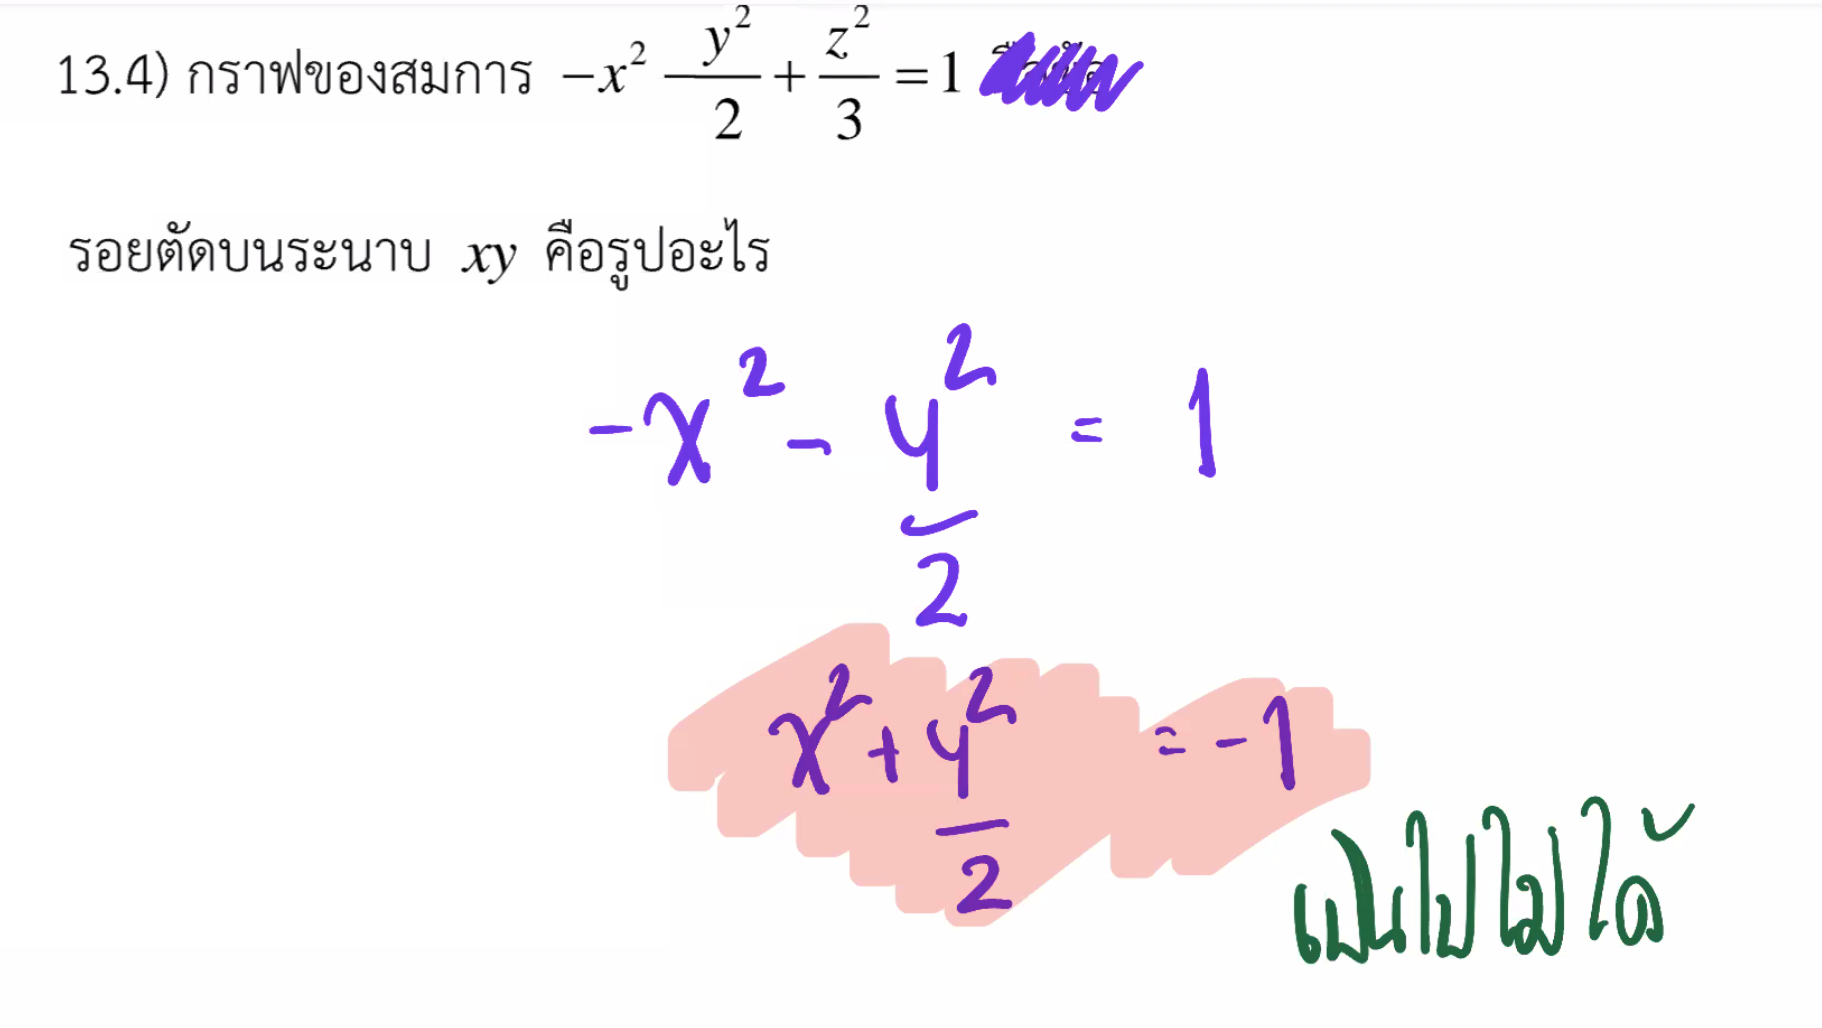 13.4) กราฟของสมการ −x² − y²/2 + z²/3 = 1
รอยตัดบนระนาบ xy คือรูปอะไร
-x² - y²/2 = 1
x² + y²/2 = -1
เป็นไปไม่ได้